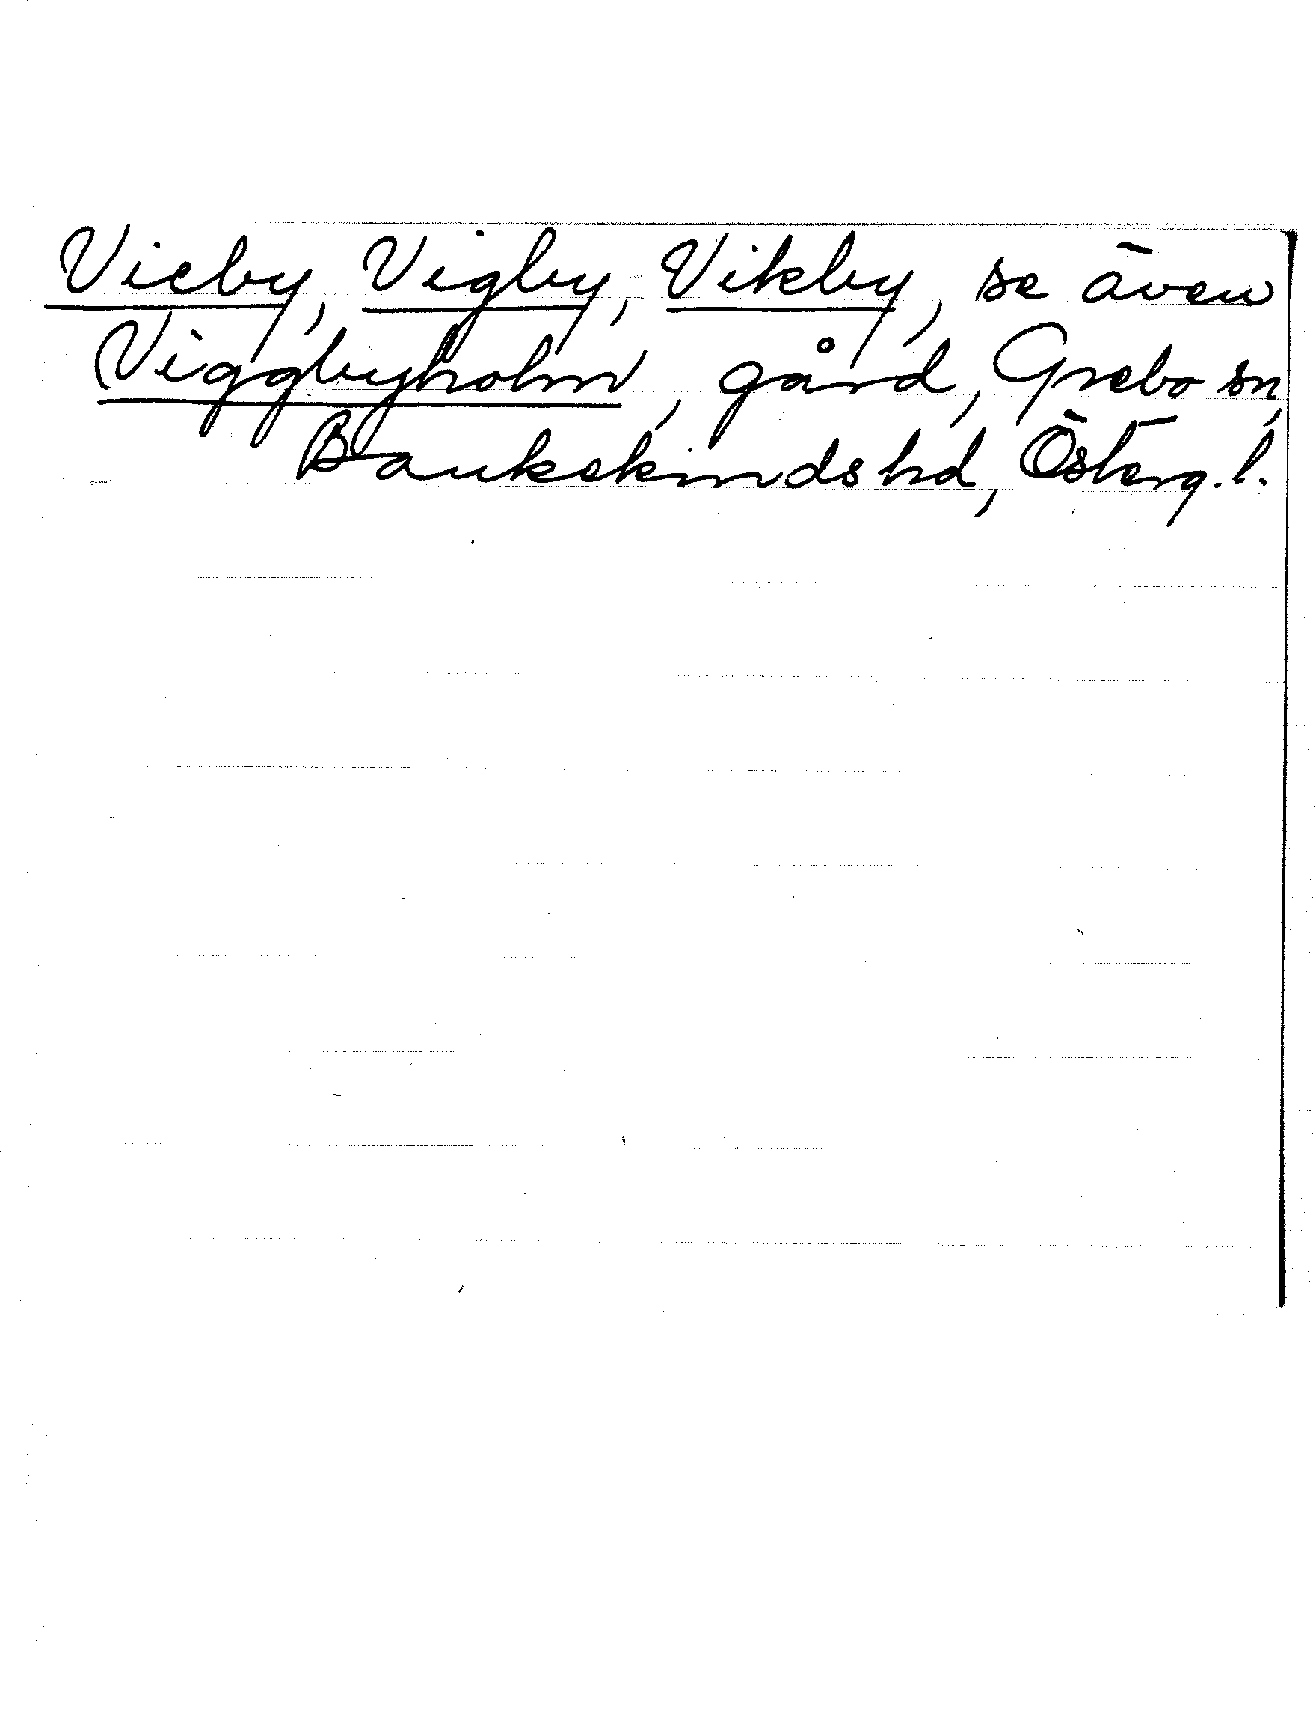 Vicby, Vigby, Vikby, se även
Viggbyholm, gård, Grebo sn,
Bankekinds hd, Österg. l.